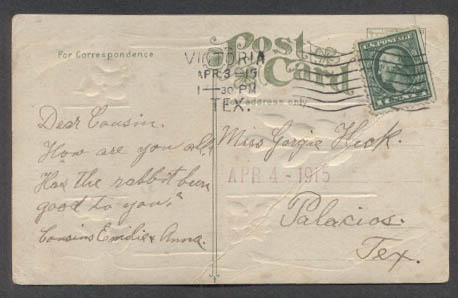 For Correspondence
Post Card
VICTORIA
APR 3 - 15
1 - 30 PM
TEX.
address only
U.S. POSTAGE
Dear Cousin.
How are you all
Has the rabbit been
good to you?
Cousins Emilie & Anna.
Miss Gorgie Heck.
APR 4 - 1915
Palacios.
Tex.